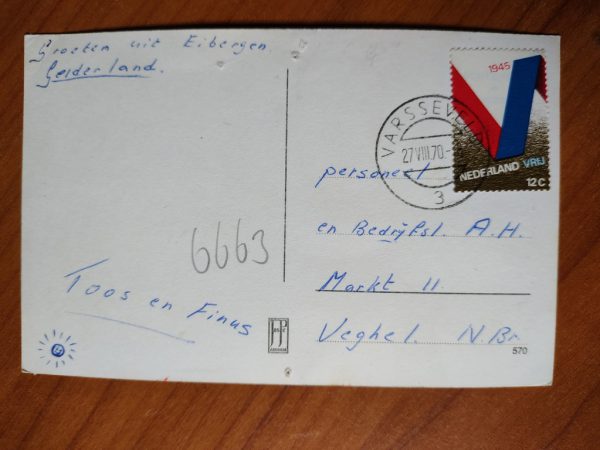 Groeten uit Eibergen
Gelderland.
6663
Toos en Finus
VARSSEVELD
27 VIII.70.
3
1945
NEDERLAND VRIJ
12c
personeel
en Bedrijfsl. A.H.
Markt 11.
Veghel. N.Br.
570